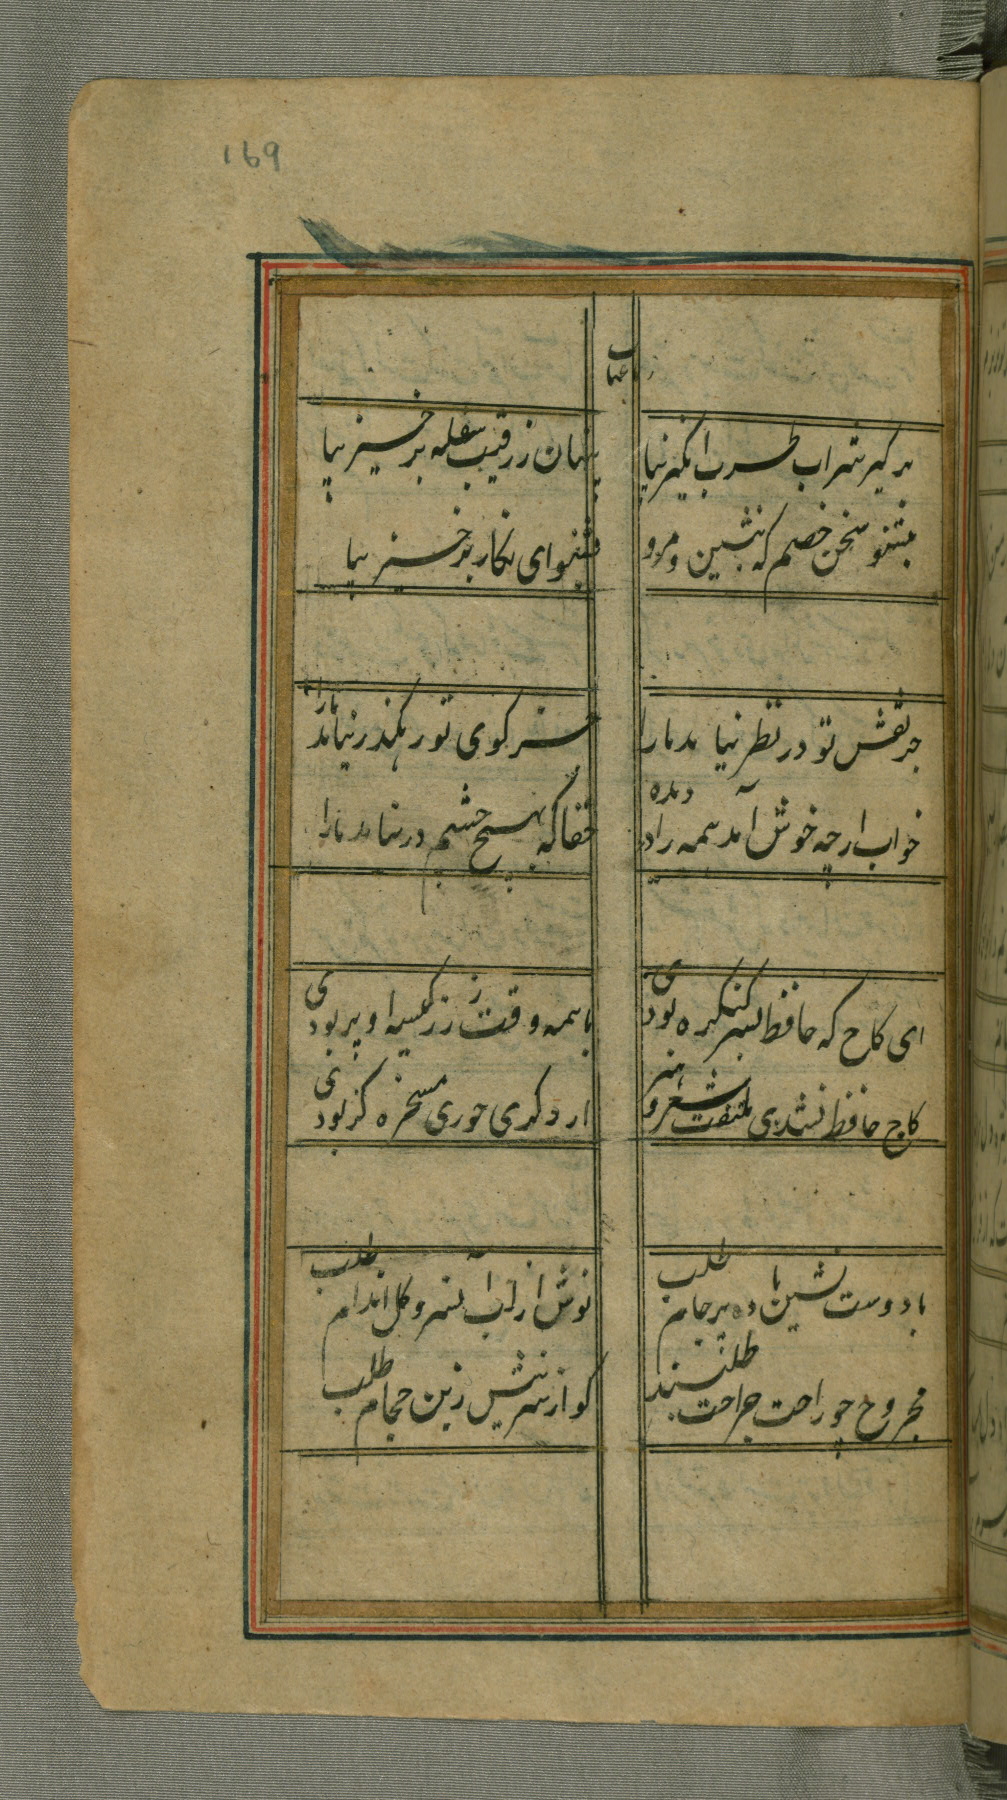 169
رباعیات
برگیر شراب طرب انگیز بیا
پنهان ز رقیب سفله برخیز بیا
مشنو سخن خصم که بنشین و مرو
بشنو ای نگار برخیز بیا
جز نقش تو در نظر نیامد ما را
جز کوی تو رهگذر نیامد ما را
خواب ارچه خوش آمد همه را در دیده
حقا که بهیچ چشم در نیامد ما را
ای کاج که حافظ بسر کنکره بودی
با همه وقت زر ز کیسه او پر بودی
کاج حافظ نشدی ملتفت شعر و هنر
ار دکری حوری مسخره کز بودی
با دوست نشین باده و جام طلب
نوش از لب آن سرو گل اندام طلب
مجروح چو راحت جراحت طلبند
کو از سر نیش زین حجام طلب